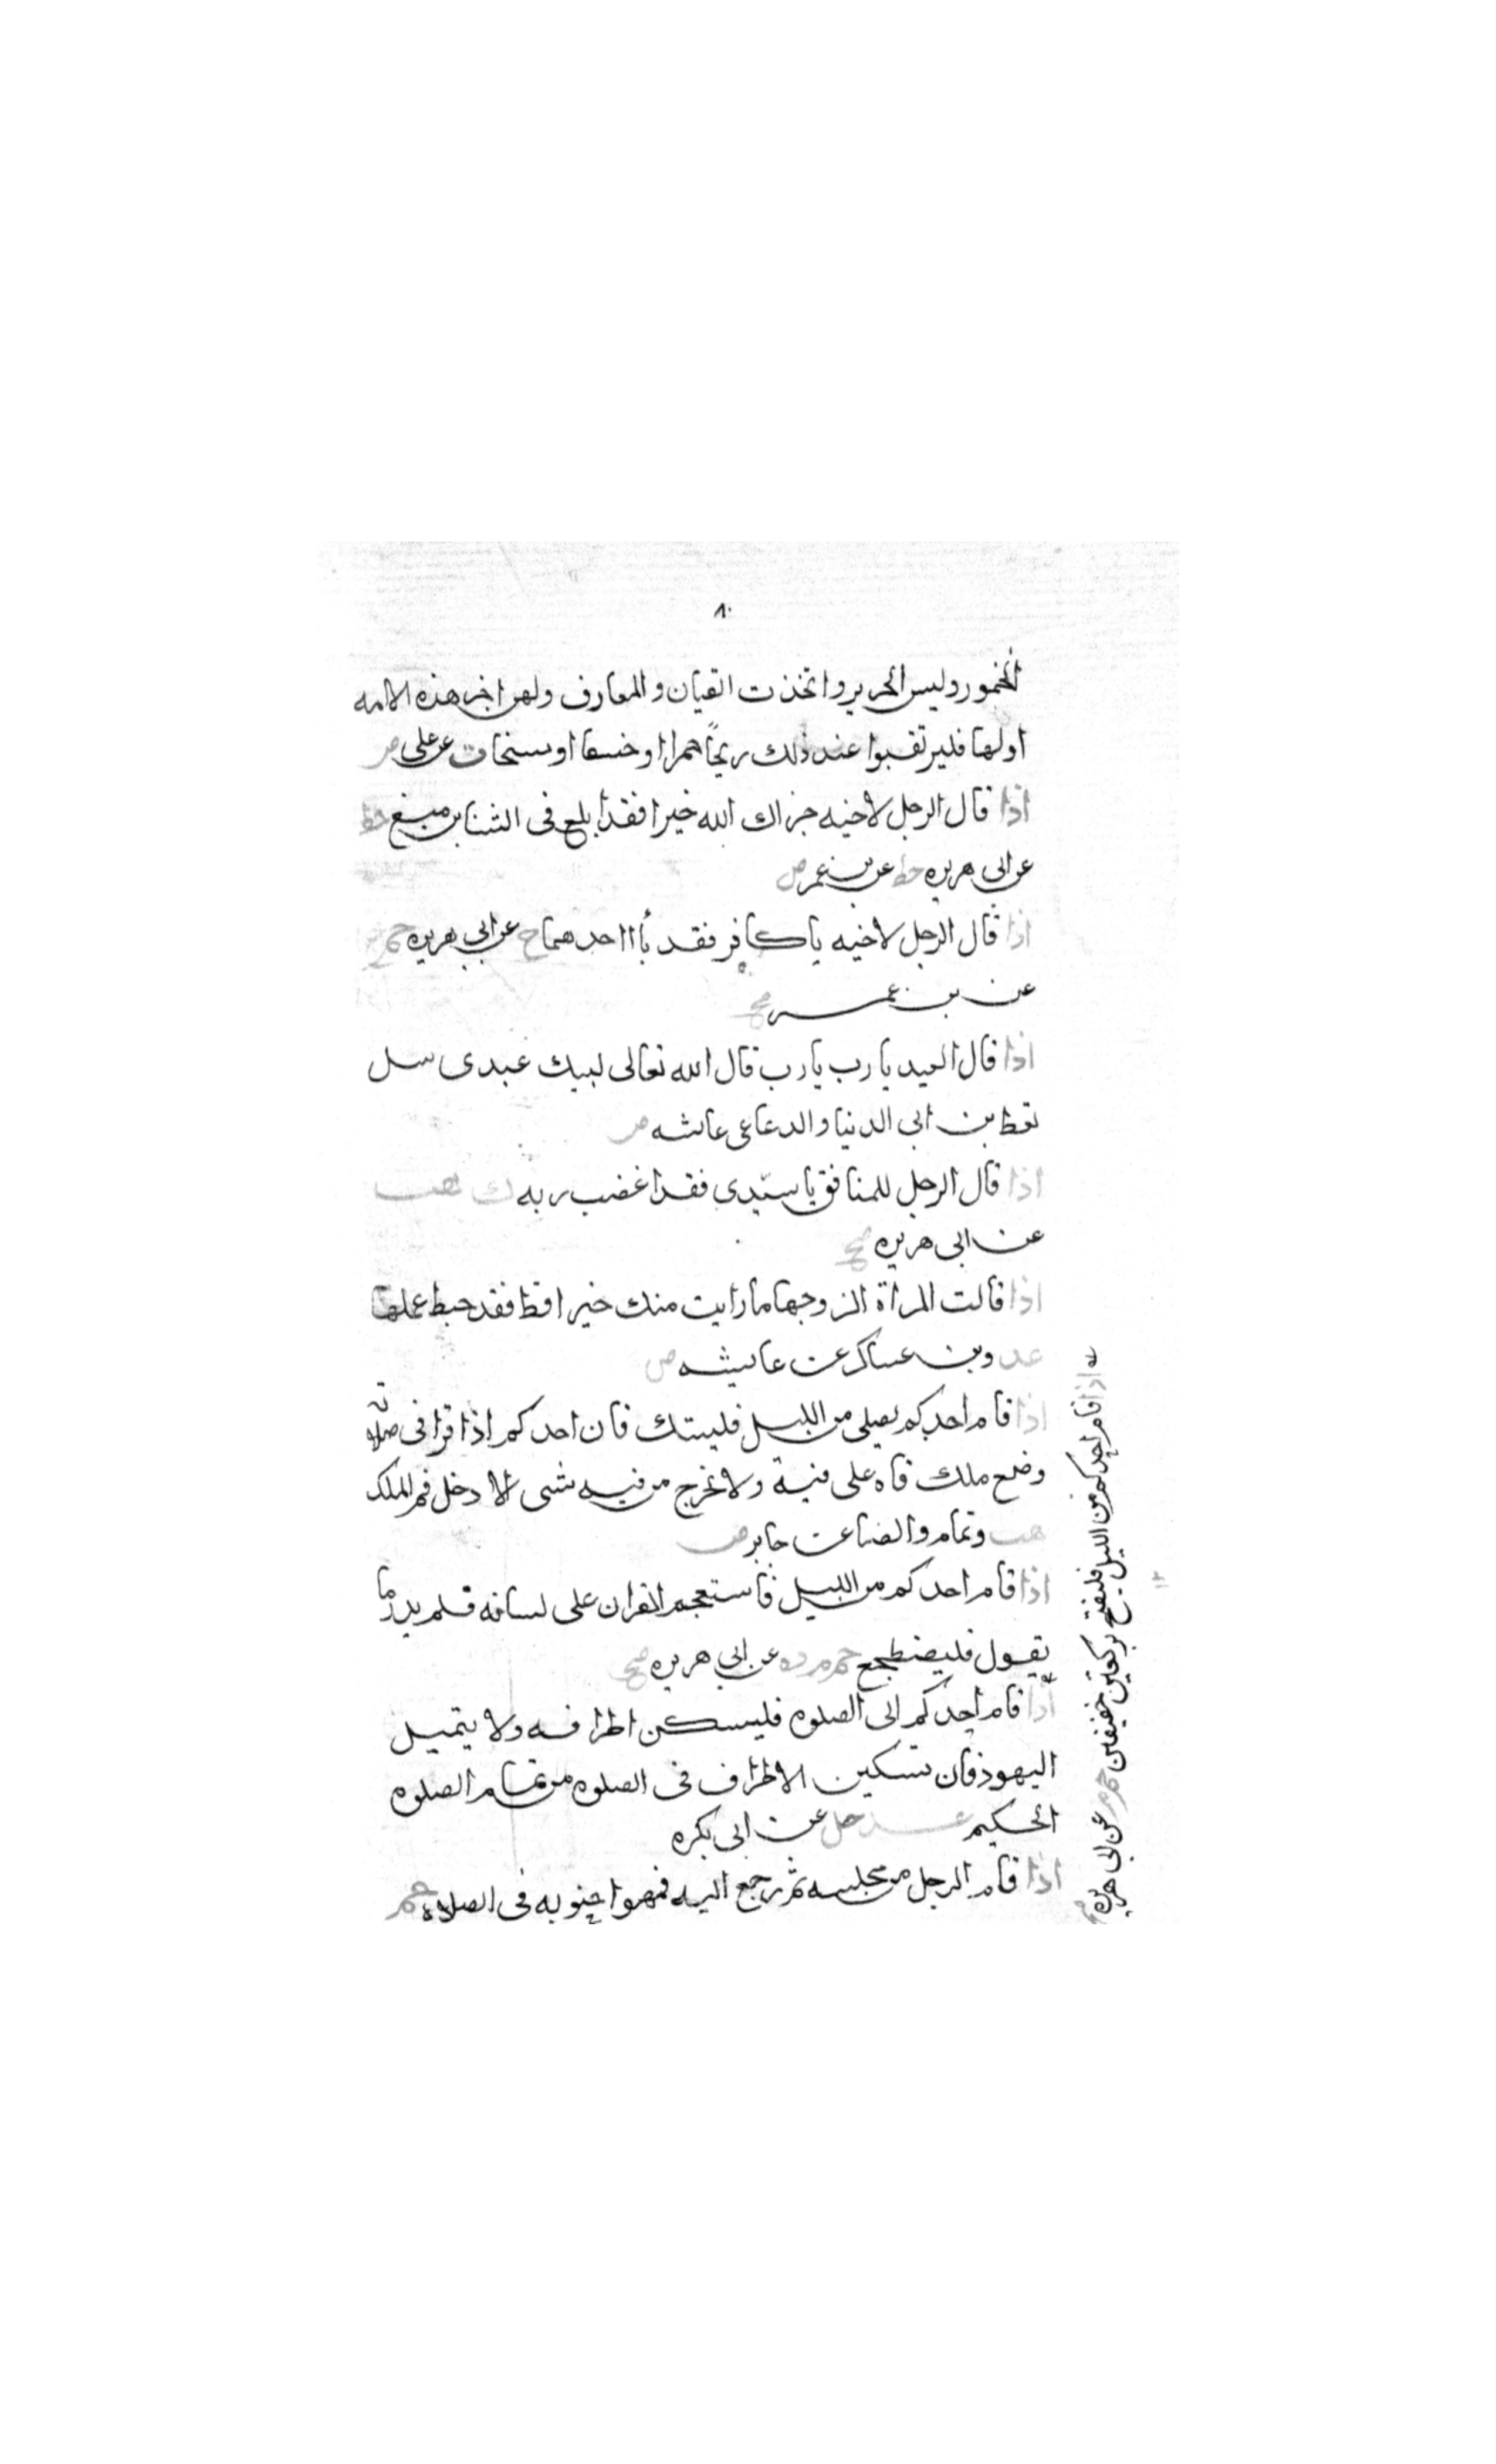 ٨٠
الخمور وليس الحرير واتخذت القيان والمعازف ولعن اخر هذه الامه
اولها فليرتقبوا عند ذلك ريحًا حمرا او خسفا او مسخا ت عن على ض
اذا قال الرجل لاخيه جزاك الله خيرا فقد ابلغ فى الثنا بن منيع خط
عن ابى هريره خط عن بن عمر ض
اذا قال الرجل لاخيه يا كافر فقد بأ احدهما خ عن ابى هريره حم خ
عن بن عمر صح
اذا قال العبد يا رب يا رب قال الله تعالى لبيك عبدى سل
تعط بن ابى الدنيا والدعا عن عائشه ض
اذا قال الرجل للمنافق يا سيّدى فقد اغضب ربه ك هب
عن ابى هريره صح
اذا قالت المراة لزوجها ما رايت منك خيرا قط فقد حبط عملها
عد وبن عساكر عن عايشه ض
اذا قام احدكم يصلى من الليل فليستك فان احدكم اذا قرا فى صلاته
وضع ملك فاه على فيه ولا يخرج من فيه شى الا دخل فم الملك
هب وتمام والضيا عن جابر ض
اذا قام احدكم من الليل فاستعجم القران على لسانه فلم يدر ما
يقول فليضطجع حم م د ه عن ابى هريره صح
اذا قام احدكم الى الصلوه فليسكن اطرافه ولا يتميل
اليهود فان تسكين الاطراف فى الصلوه من تمام الصلوه
الحكيم عد حل عن ابى بكره
اذا قام الرجل من مجلسه ثم رجع اليه فهو احق به فى الصلاه حم
اذا قام احدكم من الليل فليفتتح بركعتين خفيفتين حم م عن ابى هريره